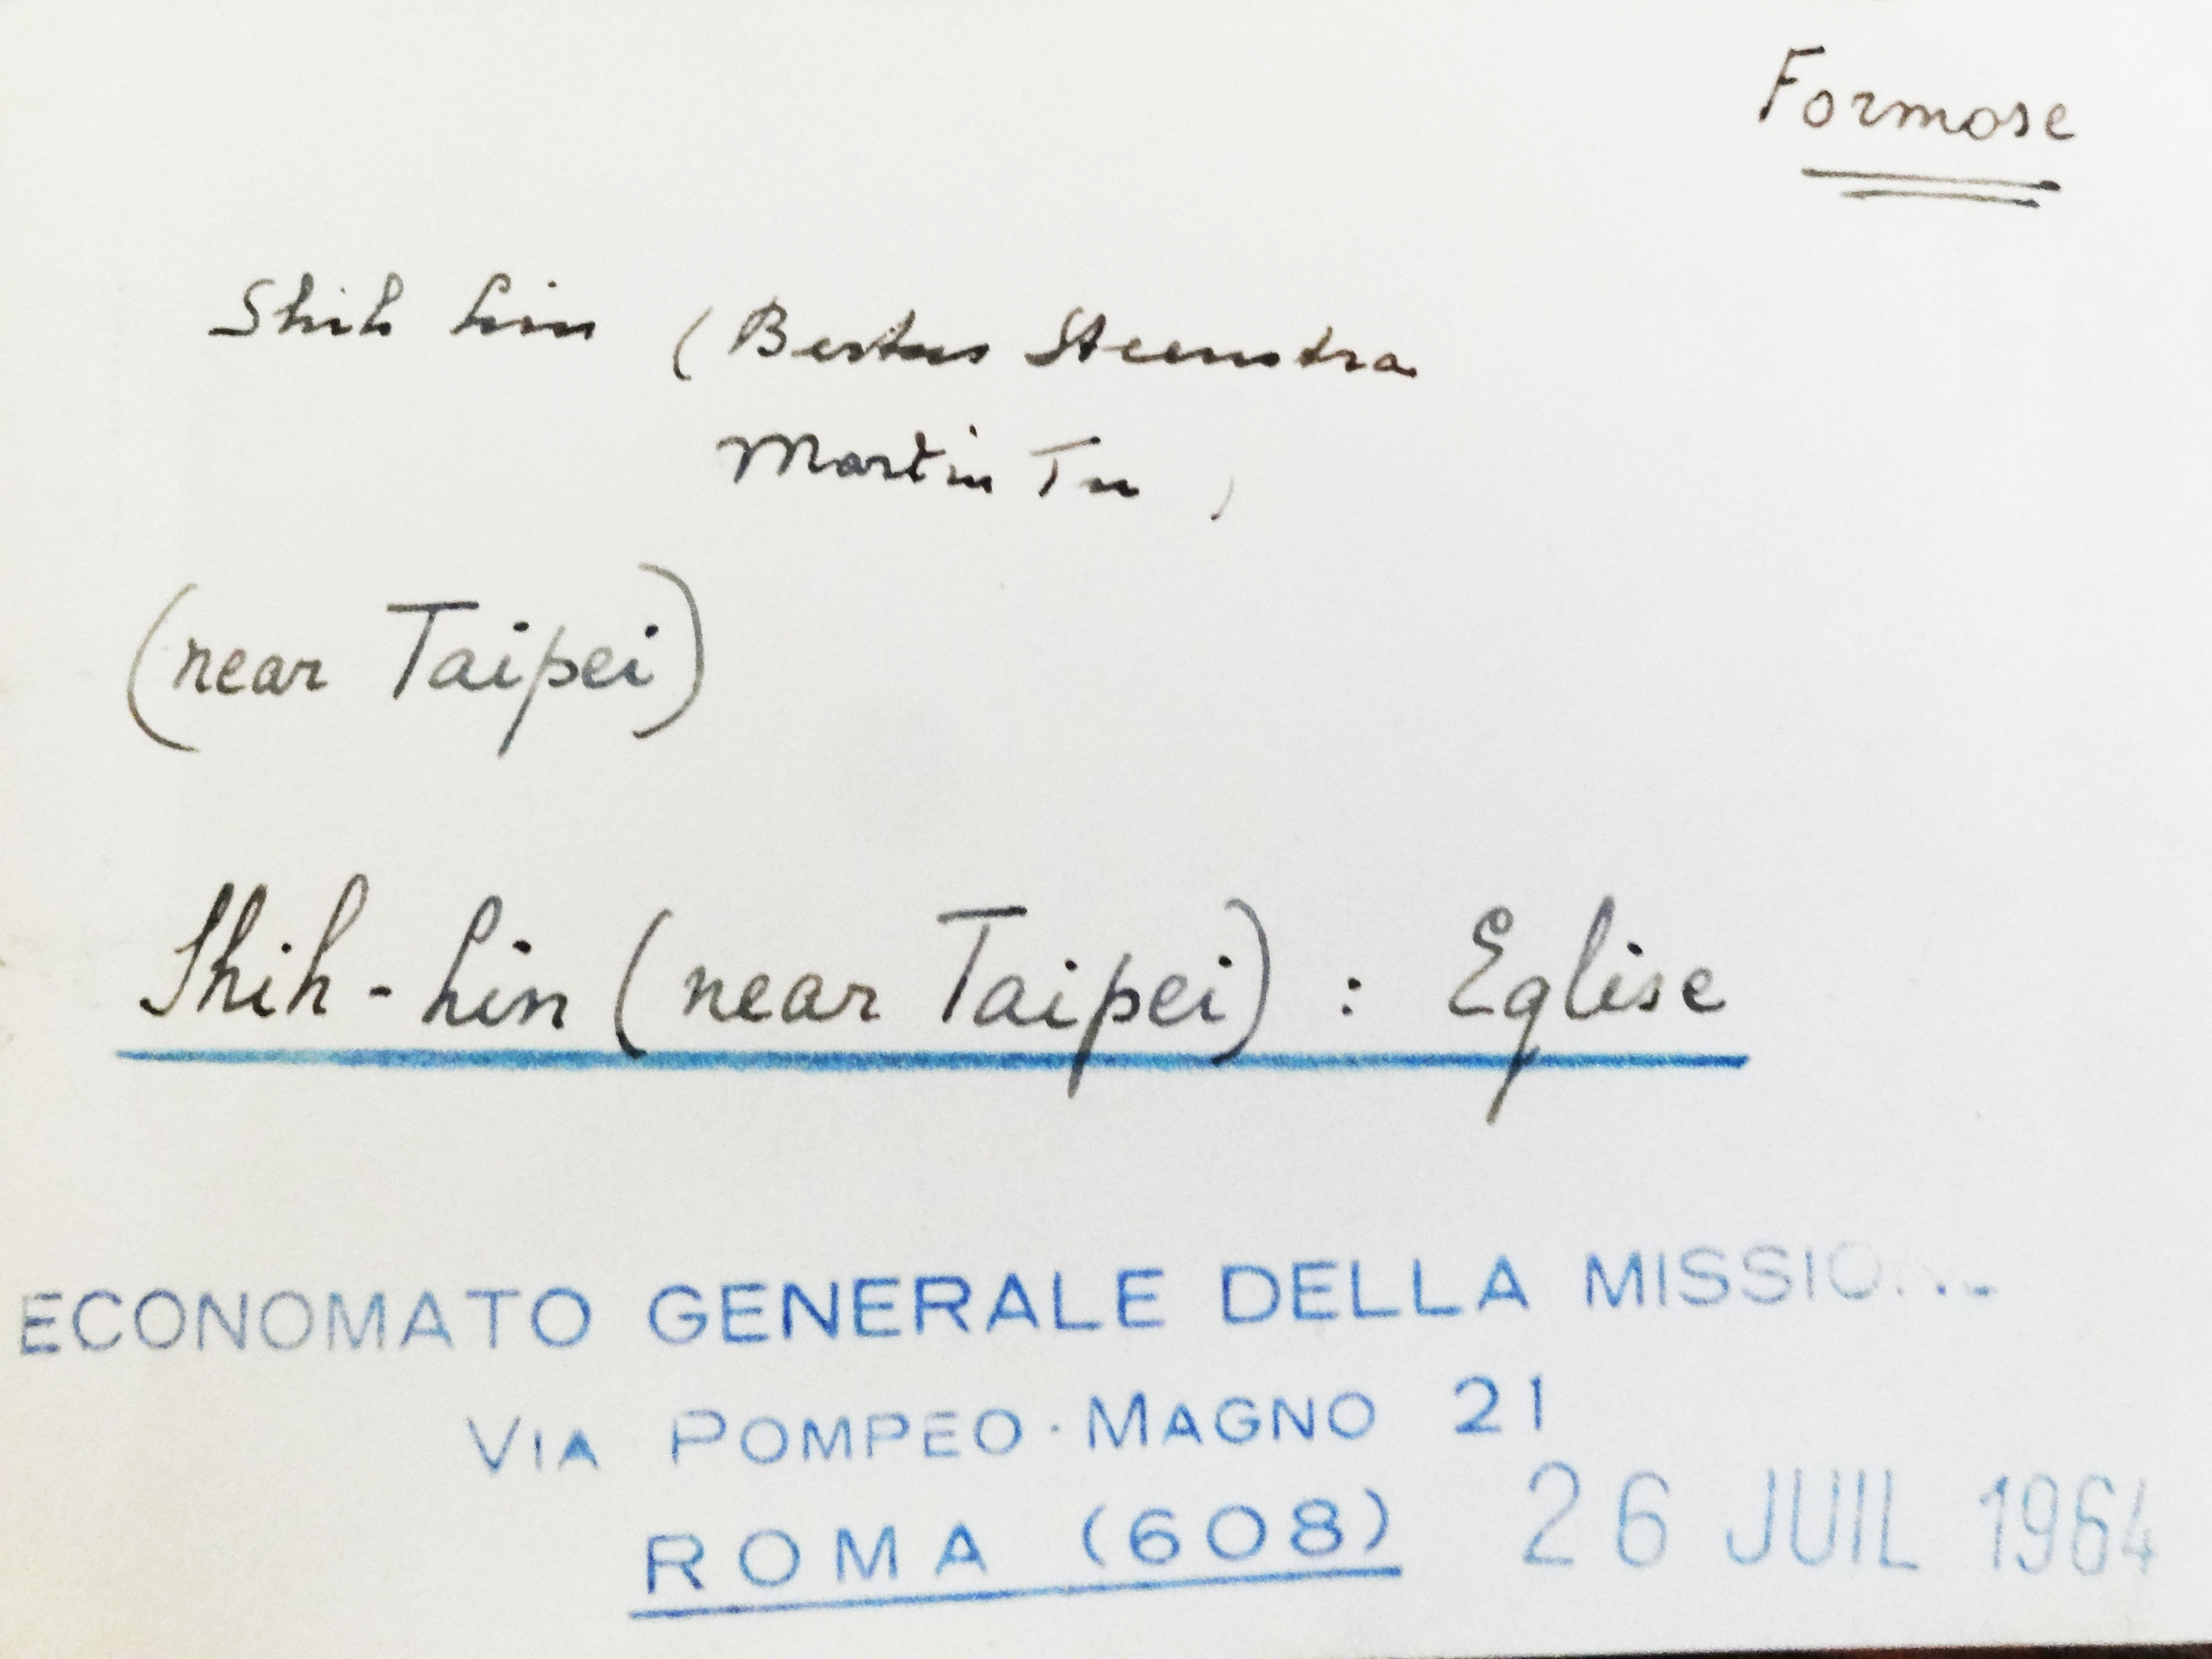 Formose
Shih Lin (Bertus Steenstra
Martin Tu )
(near Taipei)
Shih-Lin (near Taipei) : Eglise
ECONOMATO GENERALE DELLA
VIA POMPEO·MAGNO 21
ROMA (608) 26 JUIL 1964